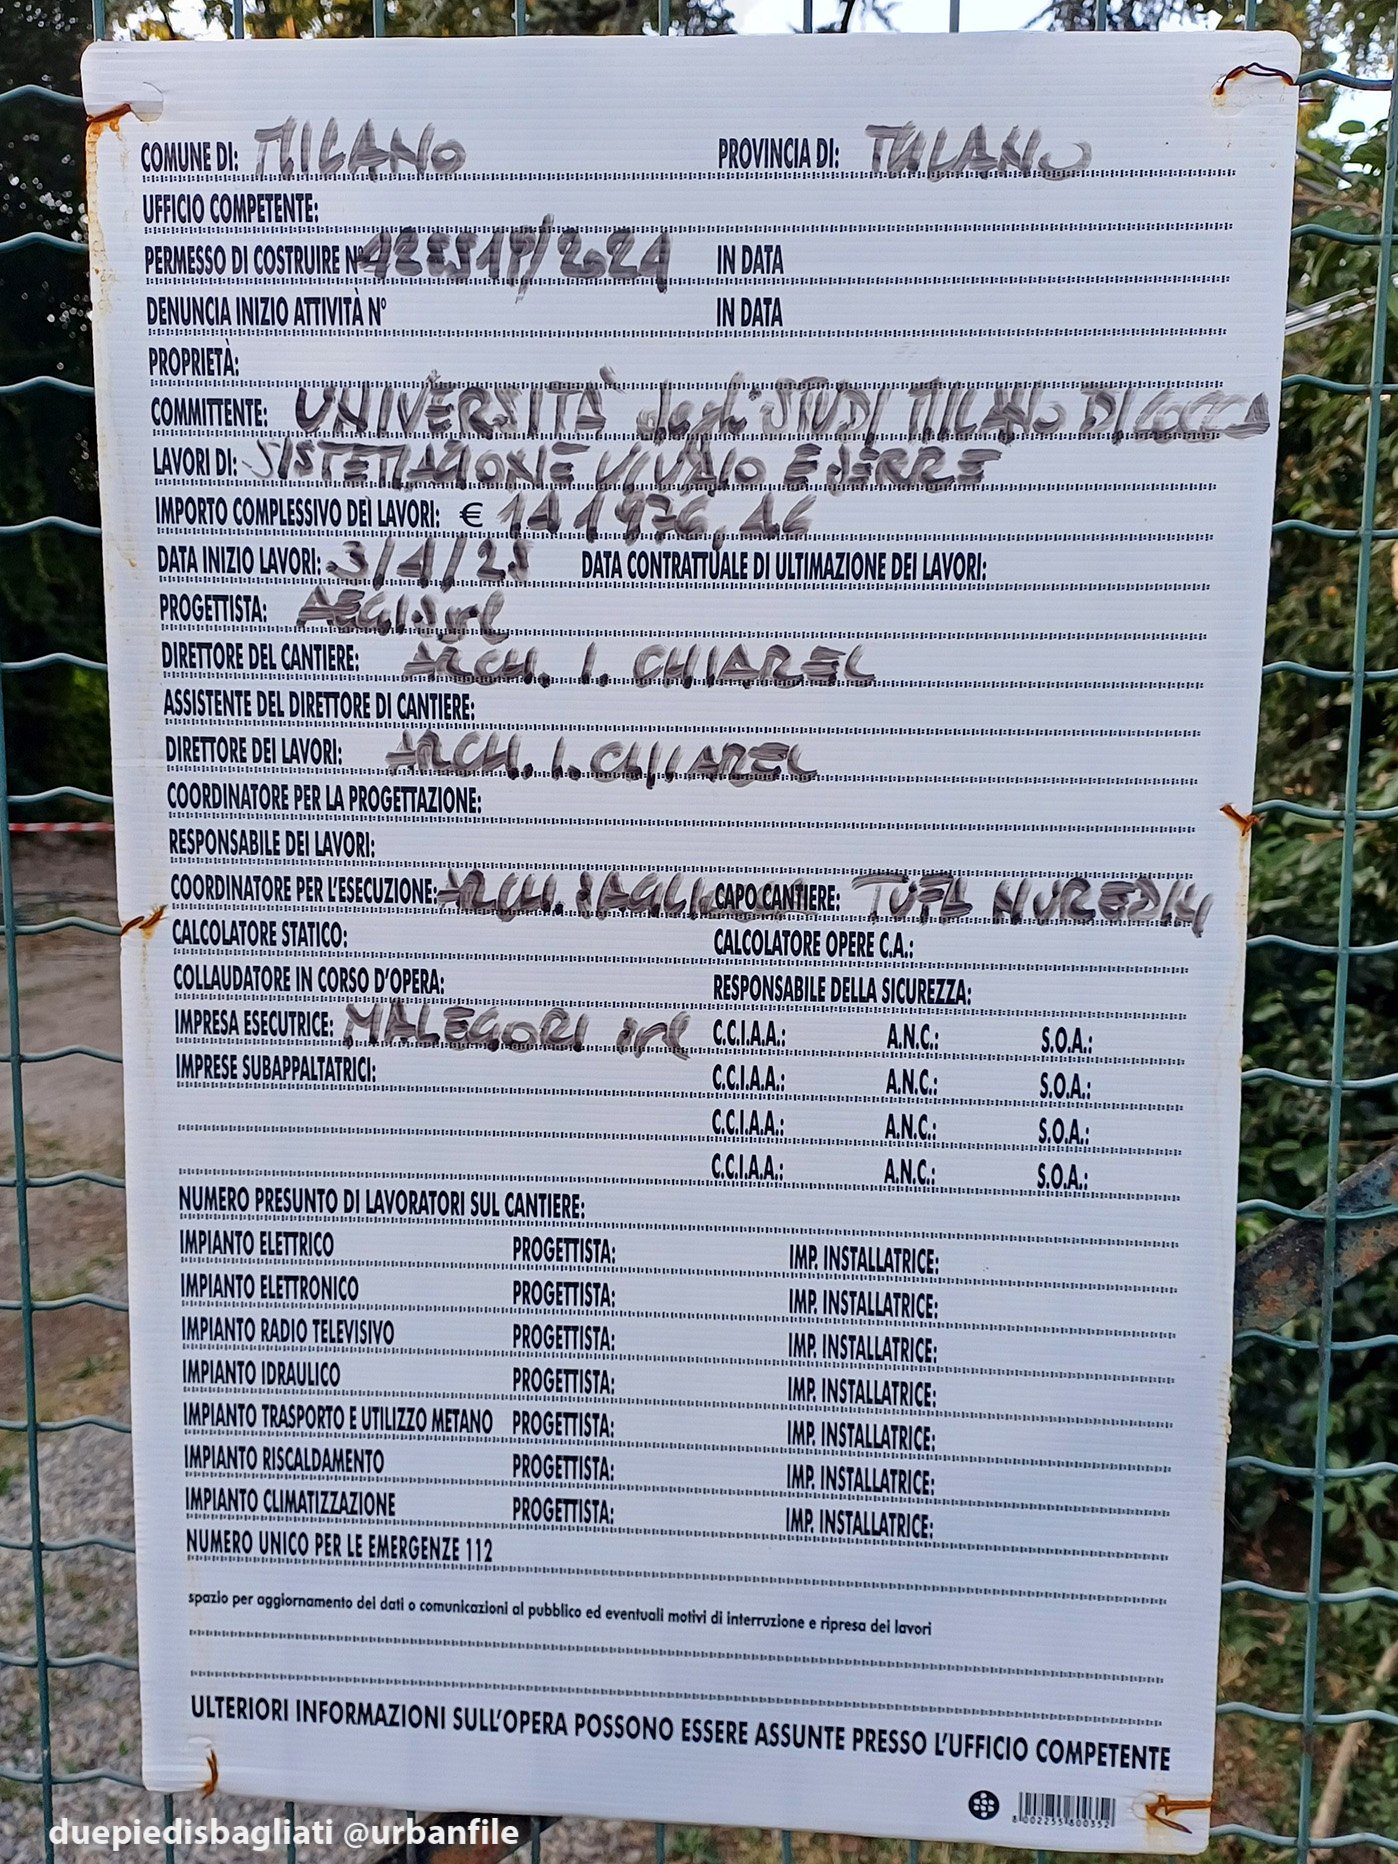 COMUNE DI: MILANO PROVINCIA DI: MILANO
UFFICIO COMPETENTE:
PERMESSO DI COSTRUIRE N° /2021 IN DATA
DENUNCIA INIZIO ATTIVITÀ N° IN DATA
PROPRIETÀ:
COMMITTENTE: UNIVERSITÀ degli STUDI MILANO BICOCCA
LAVORI DI: SISTEMAZIONE VIVAIO E SERRE
IMPORTO COMPLESSIVO DEI LAVORI: € 141976,16
DATA INIZIO LAVORI: 3/4/23 DATA CONTRATTUALE DI ULTIMAZIONE DEI LAVORI:
PROGETTISTA: AEGIS srl
DIRETTORE DEL CANTIERE: ARCH. I. CHIAREL
ASSISTENTE DEL DIRETTORE DI CANTIERE:
DIRETTORE DEI LAVORI: ARCH. I. CHIAREL
COORDINATORE PER LA PROGETTAZIONE:
RESPONSABILE DEI LAVORI:
COORDINATORE PER L'ESECUZIONE: ARCH. CAPO CANTIERE: TUFA NUREDIN
CALCOLATORE STATICO: CALCOLATORE OPERE C.A.:
COLLAUDATORE IN CORSO D'OPERA: RESPONSABILE DELLA SICUREZZA:
IMPRESA ESECUTRICE: MALEGORI srl C.C.I.A.A.: A.N.C.: S.O.A.:
IMPRESE SUBAPPALTATRICI: C.C.I.A.A.: A.N.C.: S.O.A.:
C.C.I.A.A.: A.N.C.: S.O.A.:
C.C.I.A.A.: A.N.C.: S.O.A.:
NUMERO PRESUNTO DI LAVORATORI SUL CANTIERE:
IMPIANTO ELETTRICO PROGETTISTA: IMP. INSTALLATRICE:
IMPIANTO ELETTRONICO PROGETTISTA: IMP. INSTALLATRICE:
IMPIANTO RADIO TELEVISIVO PROGETTISTA: IMP. INSTALLATRICE:
IMPIANTO IDRAULICO PROGETTISTA: IMP. INSTALLATRICE:
IMPIANTO TRASPORTO E UTILIZZO METANO PROGETTISTA: IMP. INSTALLATRICE:
IMPIANTO RISCALDAMENTO PROGETTISTA: IMP. INSTALLATRICE:
IMPIANTO CLIMATIZZAZIONE PROGETTISTA: IMP. INSTALLATRICE:
NUMERO UNICO PER LE EMERGENZE 112
spazio per aggiornamento dei dati o comunicazioni al pubblico ed eventuali motivi di interruzione e ripresa dei lavori
ULTERIORI INFORMAZIONI SULL'OPERA POSSONO ESSERE ASSUNTE PRESSO L'UFFICIO COMPETENTE
8 002255 800352
duepiedisbagliati @urbanfile